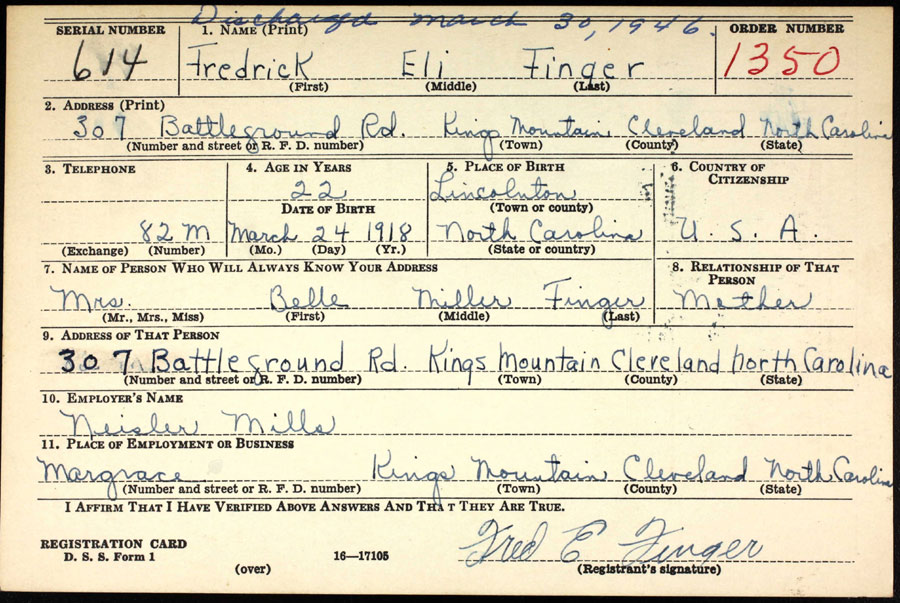 Discharged March 30, 1946.
SERIAL NUMBER 1. NAME (Print) ORDER NUMBER
614 Fredrick Eli Finger 1350
(First) (Middle) (Last)
2. ADDRESS (Print)
307 Battleground Rd. Kings Mountain Cleveland North Carolina
(Number and street or R. F. D. number) (Town) (County) (State)
3. TELEPHONE 4. AGE IN YEARS 5. PLACE OF BIRTH 6. COUNTRY OF
CITIZENSHIP
22 Lincolnton
DATE OF BIRTH (Town or county)
82 M March 24 1918 North Carolina U. S. A.
(Exchange) (Number) (Mo.) (Day) (Yr.) (State or country)
7. NAME OF PERSON WHO WILL ALWAYS KNOW YOUR ADDRESS 8. RELATIONSHIP OF THAT
PERSON
Mrs. Belle Miller Finger Mother
(Mr., Mrs., Miss) (First) (Middle) (Last)
9. ADDRESS OF THAT PERSON
307 Battleground Rd. Kings Mountain Cleveland North Carolina
(Number and street or R. F. D. number) (Town) (County) (State)
10. EMPLOYER'S NAME
Neisler Mills
11. PLACE OF EMPLOYMENT OR BUSINESS
Margrace Kings Mountain Cleveland North Carolina
(Number and street or R. F. D. number) (Town) (County) (State)
I AFFIRM THAT I HAVE VERIFIED ABOVE ANSWERS AND THAT THEY ARE TRUE.
REGISTRATION CARD
D. S. S. Form 1 16—17105 Fred E Finger
(over) (Registrant's signature)